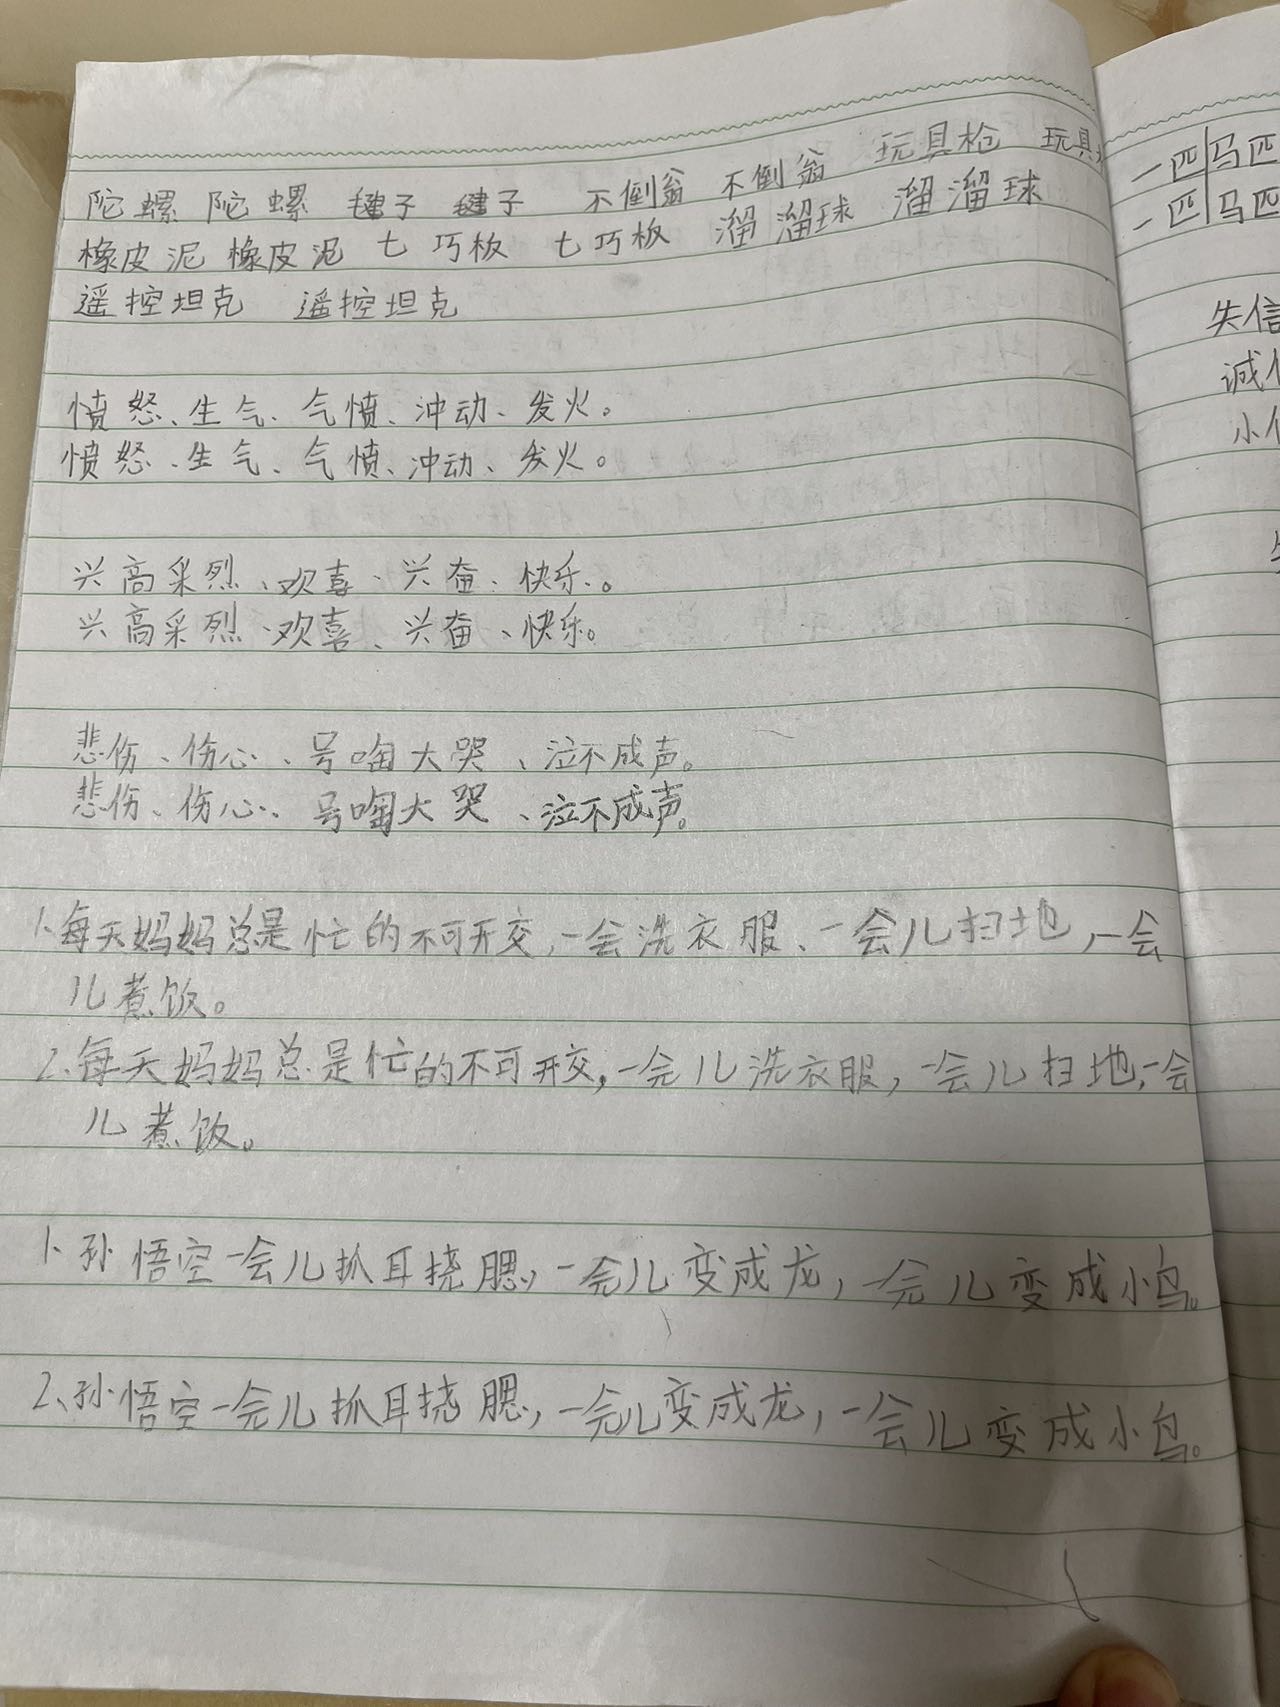 陀螺 陀螺 毽子 毽子 不倒翁 不倒翁 玩具枪 玩具
橡皮泥 橡皮泥 七巧板 七巧板 溜溜球 溜溜球
遥控坦克 遥控坦克
愤怒、生气、气愤、冲动、发火。
愤怒、生气、气愤、冲动、发火。
兴高采烈、欢喜、兴奋、快乐。
兴高采烈、欢喜、兴奋、快乐。
悲伤、伤心、号啕大哭、泣不成声。
悲伤、伤心、号啕大哭、泣不成声。
1、每天妈妈总是忙的不可开交,一会洗衣服、一会儿扫地,一会
儿煮饭。
2、每天妈妈总是忙的不可开交,一会儿洗衣服,一会儿扫地,一会
儿煮饭。
1、孙悟空一会儿抓耳挠腮,一会儿变成龙,一会儿变成小鸟。
2、孙悟空一会儿抓耳挠腮,一会儿变成龙,一会儿变成小鸟。
一匹马匹
一匹马匹
失信
诚信
小